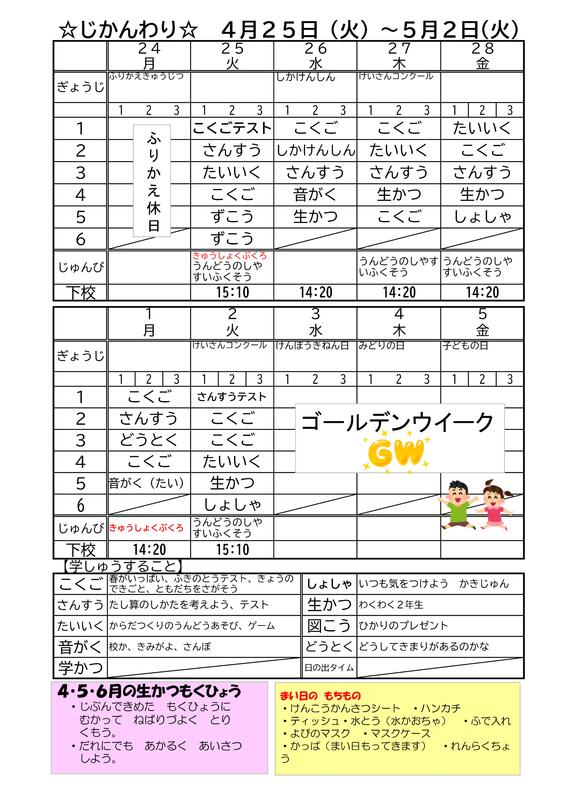 ☆じかんわり☆　４月２５日（火）～５月２日(火)
２４　２５　２６　２７　２８
月　火　水　木　金
ぎょうじ　ふりかえきゅうじつ　しかけんしん　けいさんコンクール
1 2 3　1 2 3　1 2 3　1 2 3　1 2 3
ふりかえ休日
1　こくごテスト　こくご　こくご　たいいく
2　さんすう　しかけんしん　たいいく　こくご
3　たいいく　さんすう　さんすう　さんすう
4　こくご　音がく　生かつ　生かつ
5　ずこう　生かつ　こくご　しょしゃ
6　ずこう
じゅんび　きゅうしょくぶくろ
うんどうのしや　うんどうのしやす　うんどうのしや
すいふくそう　いふくそう　すいふくそう
下校　15:10　14:20　14:20　14:20
1　2　3　4　5
月　火　水　木　金
ぎょうじ　けいさんコンクール　けんぽうきねん日　みどりの日　子どもの日
1 2 3　1 2 3　1 2 3　1 2 3　1 2 3
1　こくご　さんすうテスト
2　さんすう　こくご
3　どうとく　こくご
4　こくご　たいいく
5　音がく（たい）　生かつ
6　しょしゃ
ゴールデンウイーク
GW
じゅんび　きゅうしょくぶくろ　うんどうのしや
すいふくそう
下校　14:20　15:10
【学しゅうすること】
こくご　春がいっぱい、ふきのとうテスト、きょうの
できごと、ともだちをさがそう
しょしゃ　いつも気をつけよう　かきじゅん
さんすう　たし算のしかたを考えよう、テスト
生かつ　わくわく２年生
たいいく　からだつくりのうんどうあそび、ゲーム
図こう　ひかりのプレゼント
音がく　校か、きみがよ、さんぽ
どうとく　どうしてきまりがあるのかな
学かつ
日の出タイム
4・5・6月の生かつもくひょう
・じぶんできめた　もくひょうに
むかって　ねばりづよく　とり
くもう。
・だれにでも　あかるく　あいさつ
しよう。
まい日の　もちもの
・けんこうかんさつシート　・ハンカチ
・ティッシュ・水とう（水かおちゃ）　・ふで入れ
・よびのマスク　・マスクケース
・かっぱ（まい日もってきます）　・れんらくちょ
う